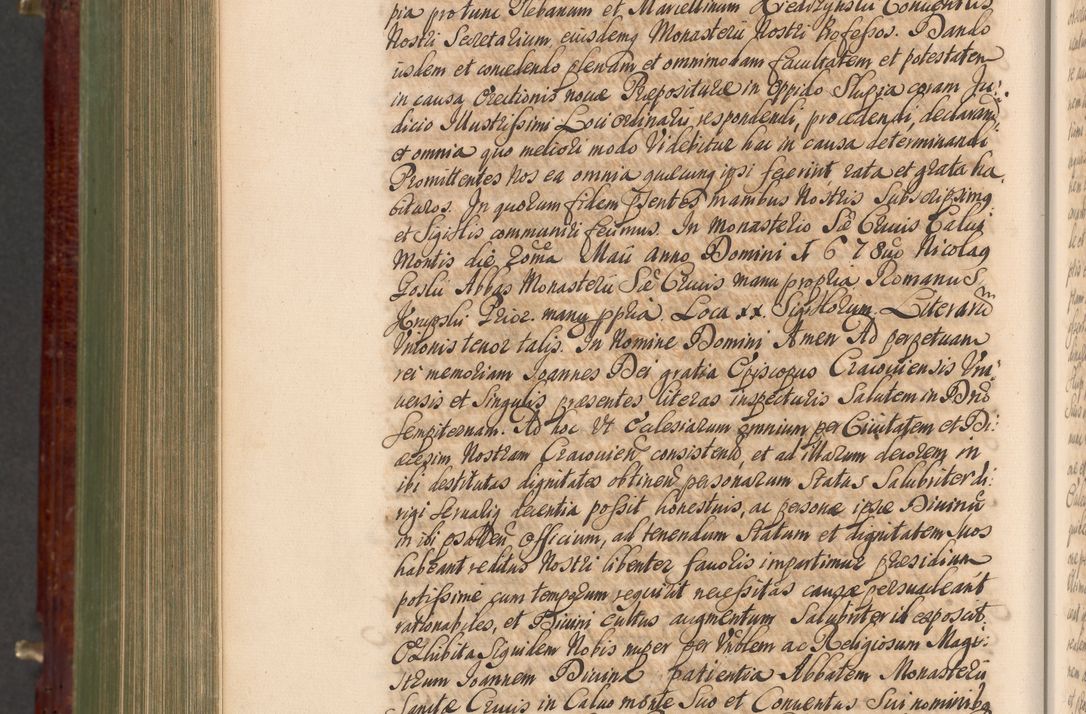 pia pro tunc Plebanum et Marcellinum Kiedrzynski Conventus
Nostri Secretarium, eiusdemq Monasterii Nostri Professos. Dando
iisdem et concedendo plenam et omnimodam facultatem et potestatem
in causa Erectionis novæ Præposituræ in oppido Slupia coram Ju:
dicio Illustrissimi Loci ordinarii respondendi, procedendi, declarandi
et omnia quo meliori modo Videbitur hac in causa determinandi
Promittentes Nos ea omnia quæcunq ipsi fecerint rata et grata ha
bituros. In quorum fidem Psentes manibus Nostris Subscripsimq
et Sigillis communiri fecimus. In Monasterio Sæ Crucis Calvi
Montis die 20ma Maii Anno Domini 1678vo Nicolaq
Goski Abbas Monasterii Sæ Crucis manu propria Romanus
Krupski Prior manu ppria. Loca xx Sigillorum. Literarū
Unionis tenor talis. In Nomine Domini Amen Ad perpetuam
rei memoriam Joannes Dei gratia Episcopus Cracoviensis Uni
versis et Singulis præsentes literas inspecturis Salutem in Dno
Sempiternam. Ad hoc Ut Ecclesiarum omnium per Civitatem et Di:
æcesim Nostram Cracovien consistentiū, et ad illarum decorem in
ibi destitutas dignitates obtinen personarum Status Salubriter di:
rigi Servaliq decentia possit honestius, ac personæ ipsæ Divinū
in ibi officium, ad tenendum Statum et dignitatem suos
habeant reditus Nostri libenter favoris impartimur præsidium
potissime cum temporum requirit necessitas causæ persuadeant
rationabiles, et Divini cultus augmentum Salubriter id exposcit.
Exhibita Siquidem Nobis nuper per Vnblem ac Religiosum Magi:
strum Joannem Divina patientia Abbatem Monasterii
Sanctæ Crucis in Calvo monte Suo et Conventus Sui nominibq